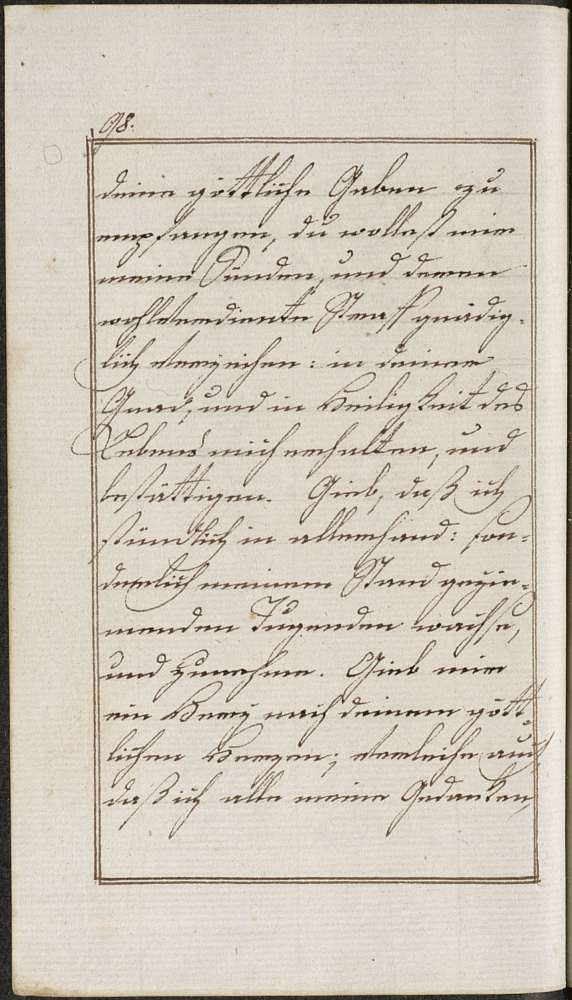 98.
deine göttliche Gaben zu
empfangen, du wollest mir
meine Sünden, und deren
wohlverdiente Straff gnädig-
lich verzeihen: in deiner
Gnad, und in Heiligkeit des
Lebens mich erhalten, und
bestättigen. Gieb, daß ich
stündlich in allerhand: son-
derlich meinem Stand gezie-
menden Tugenden wachse,
und zunehme. Gieb mir
ein Herz nach deinem gött-
lichen Herzen; verleihe auch,
daß ich alle meine Gedanken,